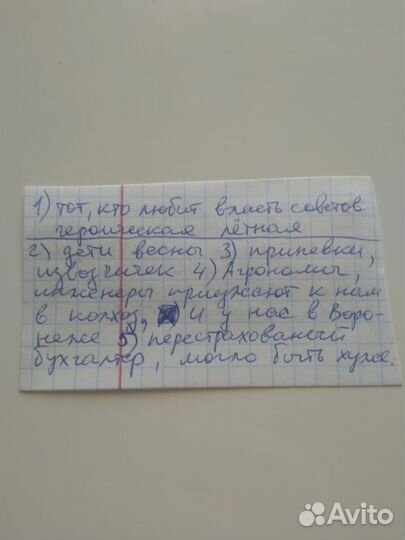 1) тот, кто любит власть советов
героическая лётная
2) дети весны 3) припевки,
извозчичек 4) Агрономы,
инженеры приезжают к нам
в колхоз, ) и у нас в Воро-
неже 5) перестрахованый
бухгалтер, могло быть хуже.
Avito